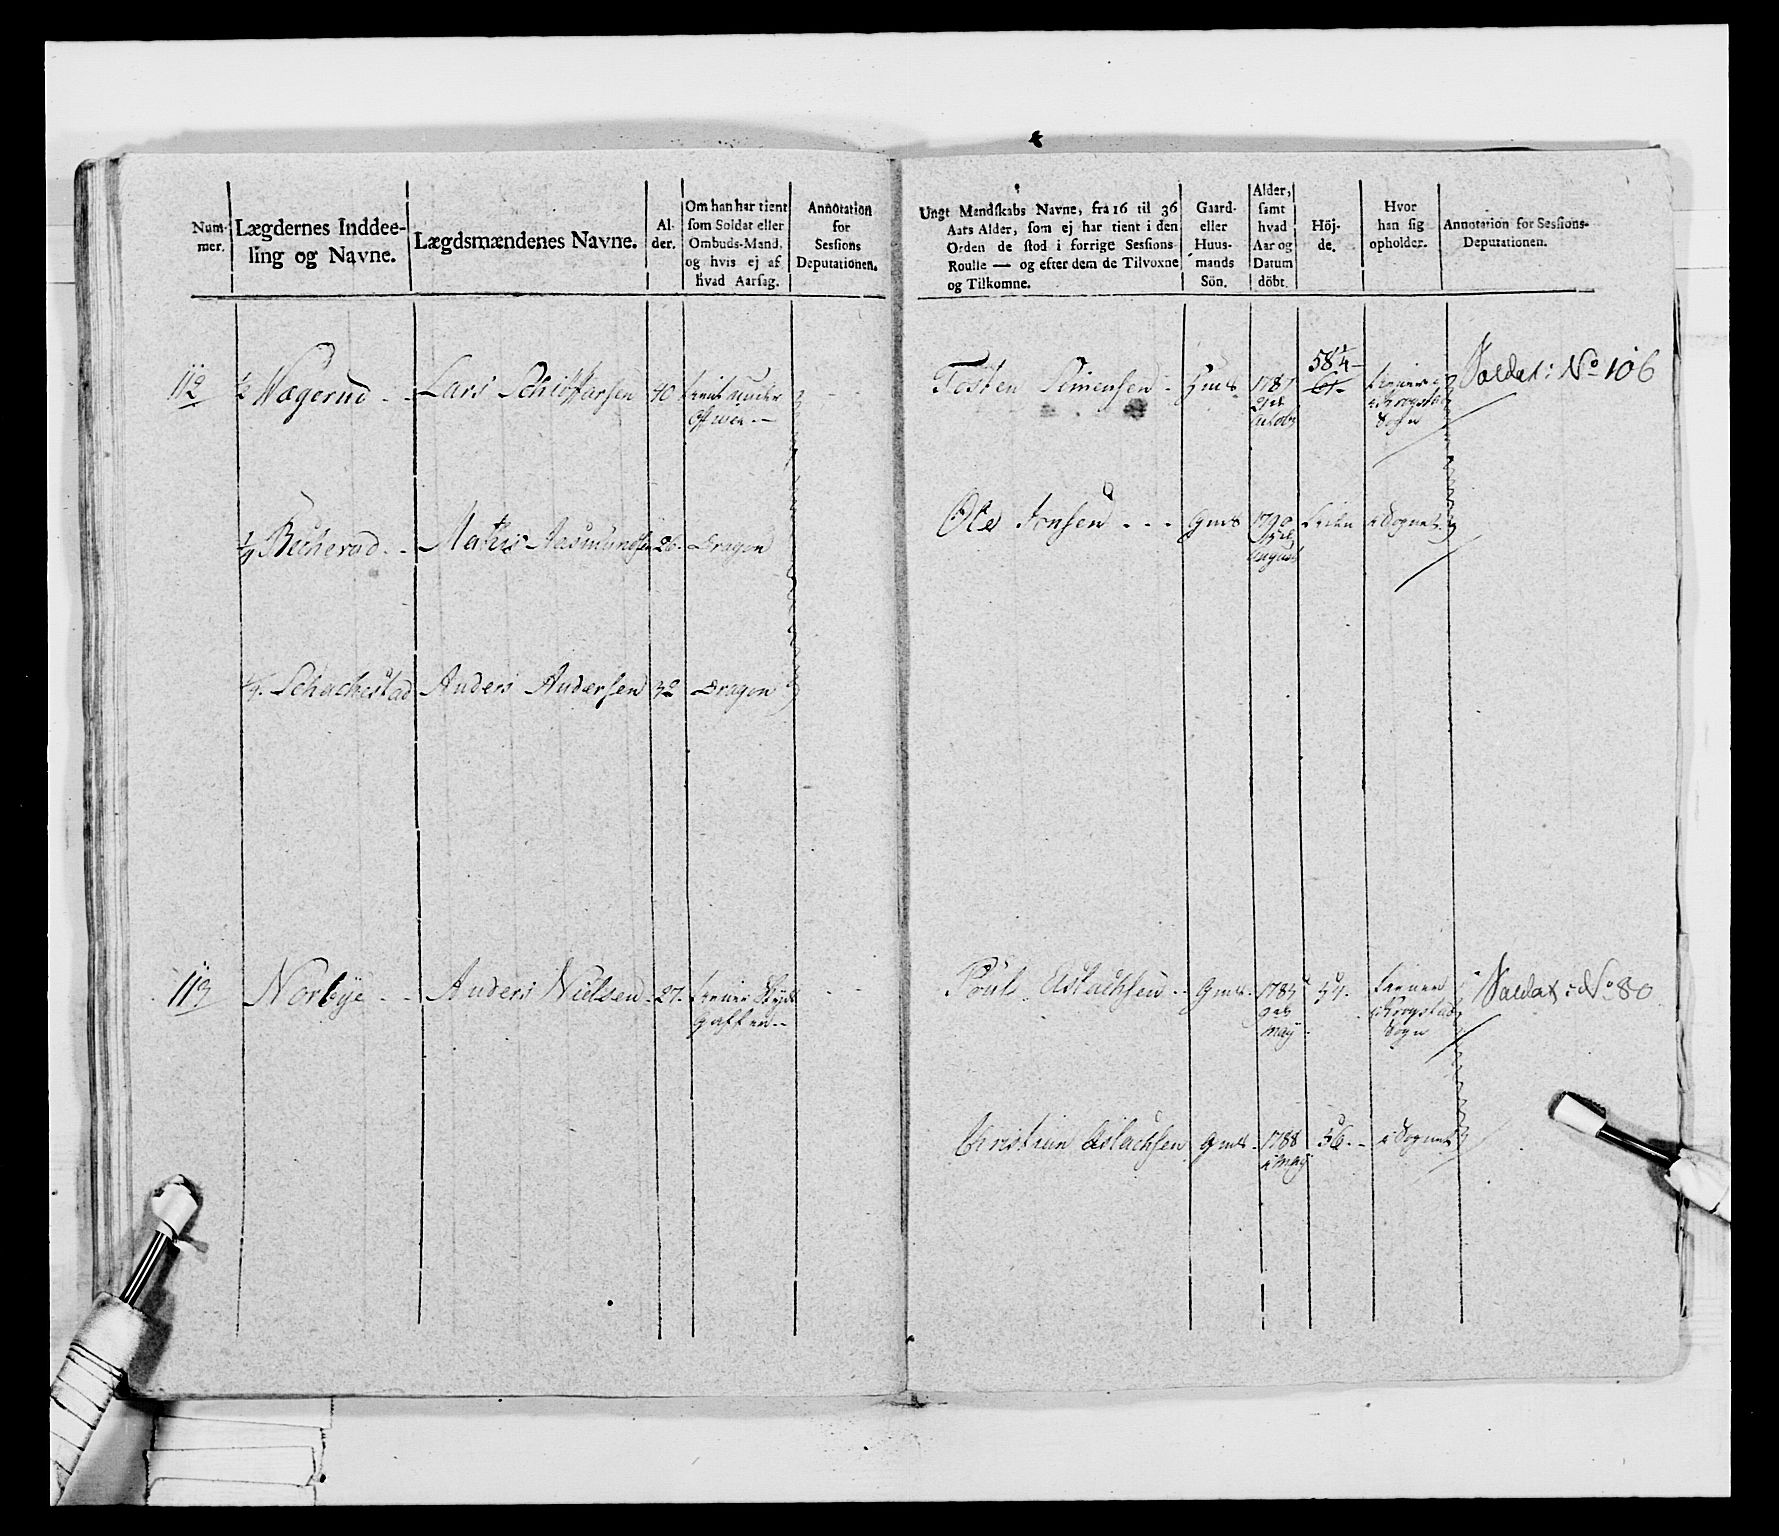 Num-
mer.
Lægdernes Inddee-
ling og Navne.
Lægdsmændenes Navne.
Al-
der.
Om han har tient
som Soldat eller
Ombuds-Mand,
og hvis ej af
hvad Aarsag.
Annotation
for
Sessions
Deputationen.
112
1/2 Wægerud - -
Lars
40
1/4 Becherud - -
Mathis Aasmundsen
26. Dragon
1/4. Schachestad
Anders Andersen
32
Dragon
113
Norbye - -
Anders Nielsen
27.
Ungt Mandskabs Navne, fra 16 til 36
Aars Alder, som ej har tient i den
Orden de stod i forrige Sessions-
Roulle — og efter dem de Tilvoxne
og Tilkomne.
Gaard-
eller
Huus-
mands
Sön.
Alder,
samt
hvad
Aar og
Datum
döbt.
Höj-
de.
Hvor
han sig
opholder.
Annotation for Sessions-
Deputationen.
Tosten Simensen -
Hms
1787
58 1/4 -
tiener
i Krogstad
Sogn
Soldat: No 106
Ole Jonsen - - -
Gms
1790
August
liden
i Sognet
Poul Aslachsen - -
Gms -
1785
May
54.
tiener
i Krogstad
Sogn
Soldat: No 80
Christian Aslachsen
Gms -
1788
i May
56. -
i Sognet